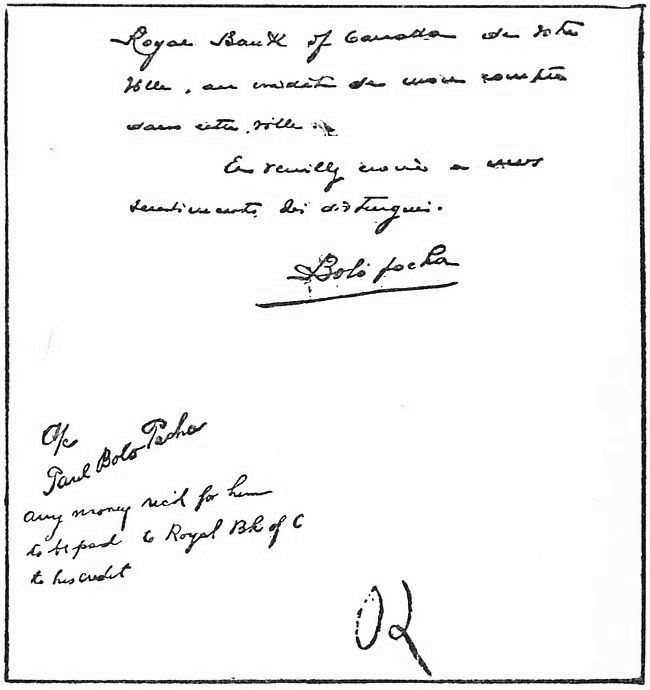 Royal Bank of Canada de votre
ville, au crédit de mon compte
dans cette ville.
En veuillez croire à mes
sentiments les distingués.
Bolo pacha
O/c
Paul Bolo Pacha
any money rec'd for him
to be paid to Royal Bk of C
to his credit
OK